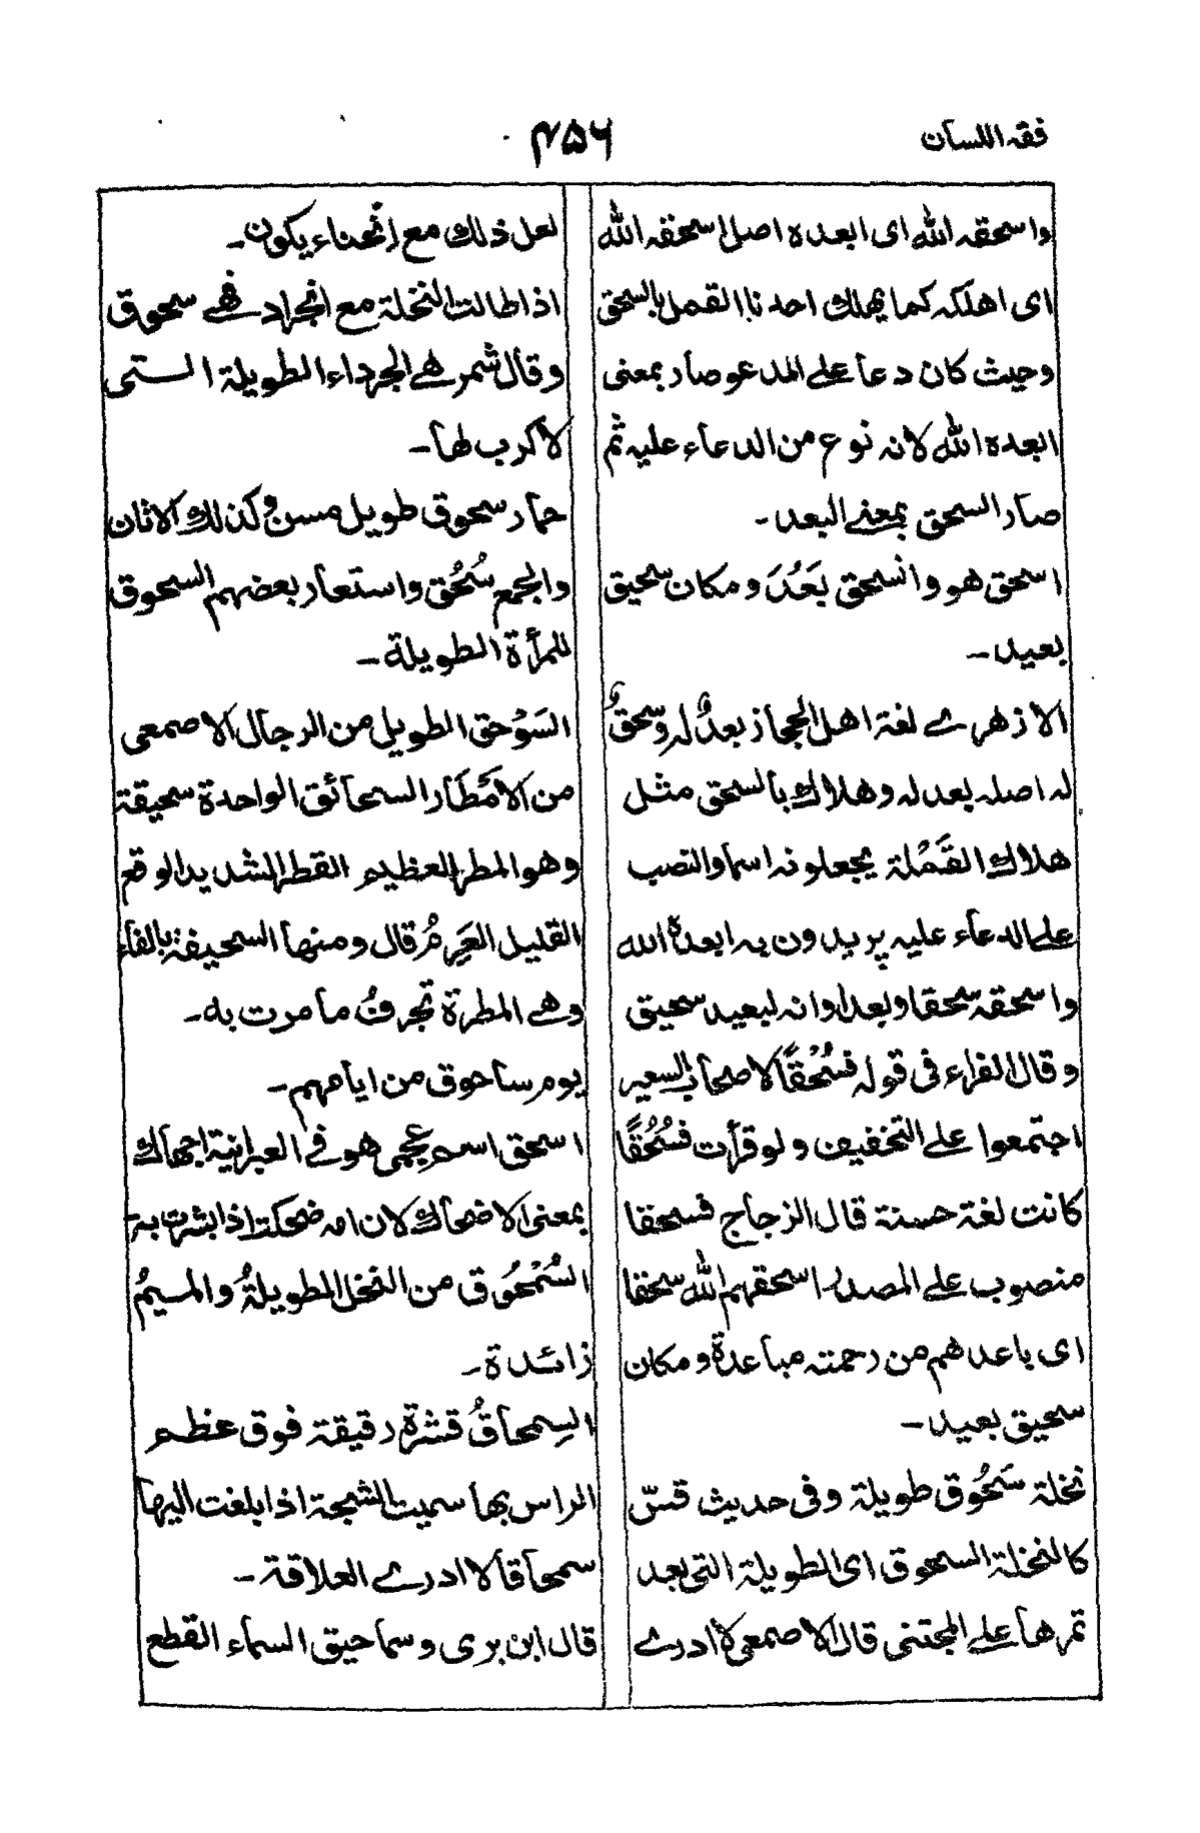 فقه اللسان
۴۵۶
واسحقه الله ای ابعده اصل اسحقه الله
ای اهلکه کما یهلك احدنا القمل بالسحق
وحیث کان دعا علی المدعو صار بمعنی
ابعده الله لانه نوع من الدعاء علیه ثم
صار السحق بمعنی البعد۔
اسحق هو وانسحق بَعُدَ ومکان سحیق
بعید۔
الازهری لغة اهل الحجاز بعدٌ له وسحقٌ
له اصله بعد له وهلاك بالسحق مثل
هلاك القَمْلة یجعلونه اسما والنصب
علی الدعاء علیه یریدون به ابعده الله
واسحقه سحقا وبعدا وانه لبعید سحیق
وقال الفراء فی قوله فسُحْقًا لاصحاب السعیر
اجتمعوا علی التخفیف ولو قرأت فسُحُقًا
کانت لغة حسنة قال الزجاج فسحقا
منصوب علی المصدر اسحقهم الله سحقا
ای باعدهم من رحمته مباعدة ومکان
سحیق بعید۔
نخلة سَحُوق طویلة وفی حدیث قسّ
کالنخلة السحوق ای الطویلة التی بعد
ثمرها علی المجتنی قال الاصمعی لا ادری
لعل ذلك مع انحناء یکون۔
اذا طالت النخلة مع انجراد فهی سحوق
وقال شمر هی الجرداء الطویلة التی
لا کرب لها۔
حمار سحوق طویل مسن وکذلك الاتان
والجمع سُحُق واستعار بعضهم السحوق
للمرأة الطویلة۔
السَوْحق الطویل من الرجال الاصمعی
من الامْطَار السحائق الواحدة سحیقة
وهو المطر العظیم القطر الشدید الوقع
القلیل العَرِمُ قال ومنها السحیفة بالفاء
وهی المطرة تجرفُ ما مرت به۔
یوم ساحوق من ایامهم۔
اسحق اسم عجمی هو فی العبرانیة اجهاك
بمعنی الاضحاك لان امه ضحکت اذا بشرت به
السُمْحُوق من النخل الطویلةُ والمیمُ
زائدة۔
السِمحاقُ قشرة رقیقة فوق عظم
الراس بها سمیت الشجة اذا بلغت الیها
سمحاقا لا ادری العلاقة۔
قال ابن بری وسماحیق السماء القطع